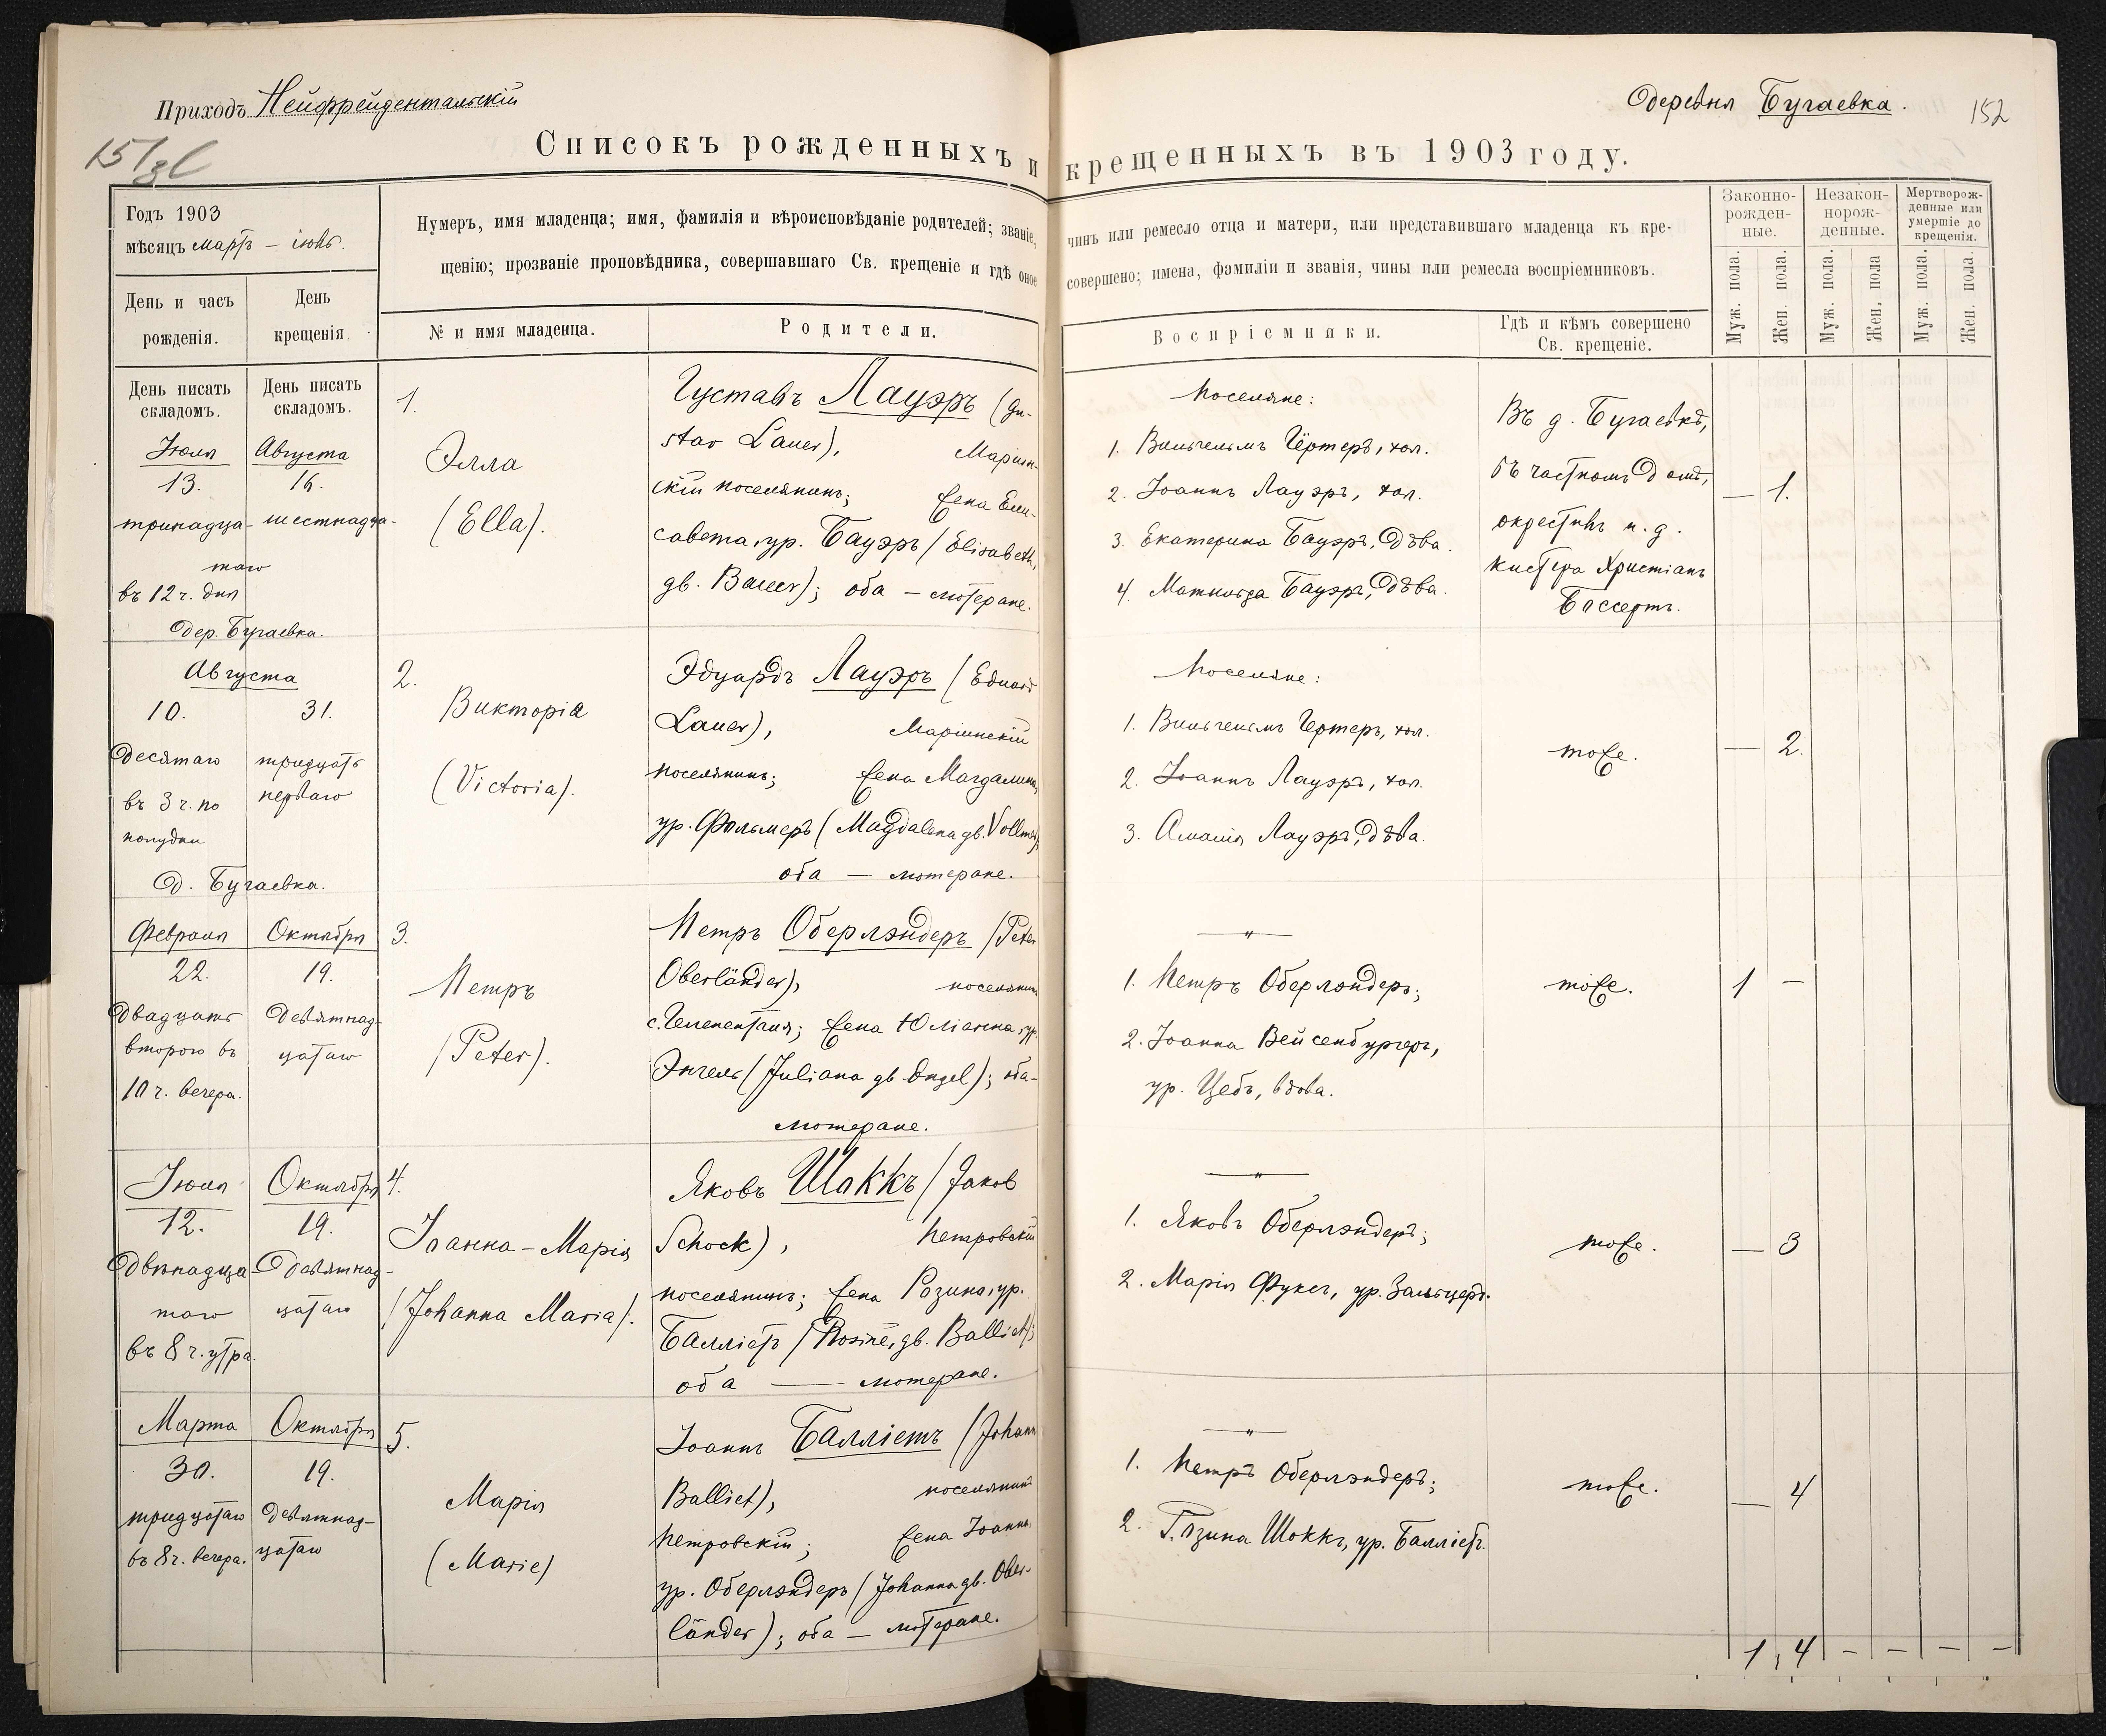 Приходъ Нейфрейдентальскій
Деревня Бугаевка.
152
Списокъ рожденныхъ и крещенныхъ въ 1903 году.
Годъ 1903
мѣсяцъ мартъ – іюнь.
Нумеръ, имя младенца; имя, фамилія и вѣроисповѣданіе родителей; званіе, чинъ или ремесло отца и матери, или представившаго младенца къ кре-
щенію; прозваніе проповѣдника, совершавшаго Св. крещеніе и гдѣ оное совершено; имена, фэмиліи и званія, чины или ремесла воспріемниковъ.
Законно-
рожден-
ные.
Незакон-
норож-
денные.
Мертворож-
денные или
умершіе до
крещенія.
День и часъ
рожденія.
День
крещенія.
№ и имя младенца.
Родители.
Воспріемники.
Гдѣ и кѣмъ совершено
Св. крещеніе.
Муж. пола.
Жен. пола.
Муж. пола.
Жен. пола
Муж. пола.
Жен. пола.
День писать
складомъ.
День писать
складомъ.
Іюля
13.
тринадца-
таго
въ 12 ч. дня
Дер. Бугаевка.
Августа
16.
шестнадца-
1.
Элла
(Ella).
Густавъ Лауэръ (Gu-
stav Lauer), Маріин-
скій поселянинъ; жена Ели-
савета, ур. Бауэръ (Elisabeth,
gb. Bauer); оба – лютеране.
Поселяне:
1. Вильгельмъ Гёртеръ, хол.
2. Іоаннъ Лауэръ, хол.
3. Екатерина Бауэръ, дѣва.
4. Матильда Бауэръ, дѣва.
Въ д. Бугаевкѣ,
въ частномъ домѣ,
окрестилъ и. д.
кистера Христіанъ
Боссертъ.
— 1.
Августа
10.
десятаго
въ 3 ч. по
полудни
Д. Бугаевка.
31.
тридцать
перваго
2.
Викторія
(Victoria).
Эдуардъ Лауэръ (Eduard
Lauer), Маріинскій
поселянинъ; жена Магдалина,
ур. Фольмеръ (Magdalena gb. Vollmer),
оба — лютеране.
Поселяне:
1. Вильгельмъ Гертеръ, хол.
2. Іоаннъ Лауэръ, хол.
3. Амалія Лауэръ, дѣва.
тоже.
— 2.
Февраля
22.
двадцать
второго въ
10 ч. вечера.
Октября
19.
девятнад-
цатаго
3.
Петръ
(Peter).
Петръ Оберлэндеръ (Peter
Oberländer), поселянинъ
с. Геленентали; жена Юліанна, ур.
Энгель (Juliana gb. Engel); оба-
лютеране.
— " —
1. Петръ Оберлэндеръ;
2. Іоанна Вейсенбургеръ,
ур. Цебъ, вдова.
тоже.
1 —
Іюля
12.
двѣнадца-
таго
въ 8 ч. утра.
Октября
19.
девятнад-
цатаго
4.
Іоанна-Марія
(Johanna Maria).
Яковъ Шоккъ (Jakob
Schock), Петровскій
поселянинъ; жена Розина, ур.
Балліетъ (Rosine, gb. Balliet);
оба — лютеране.
— " —
1. Яковъ Оберлэндеръ;
2. Марія Фуксъ, ур. Зальцеръ.
тоже.
— 3
Марта
30.
тридцатаго
въ 8 ч. вечера.
Октября
19.
девятнад-
цатаго
5.
Марія
(Marie)
Іоаннъ Балліетъ (Johann
Balliet), поселянинъ
Петровскій; жена Іоанна,
ур. Оберлэндеръ (Johanna gb. Ober-
länder); оба – лютеране.
— " —
1. Петръ Оберлэндеръ;
2. Розина Шоккъ, ур. Балліетъ.
тоже.
— 4
1 4 – – – –